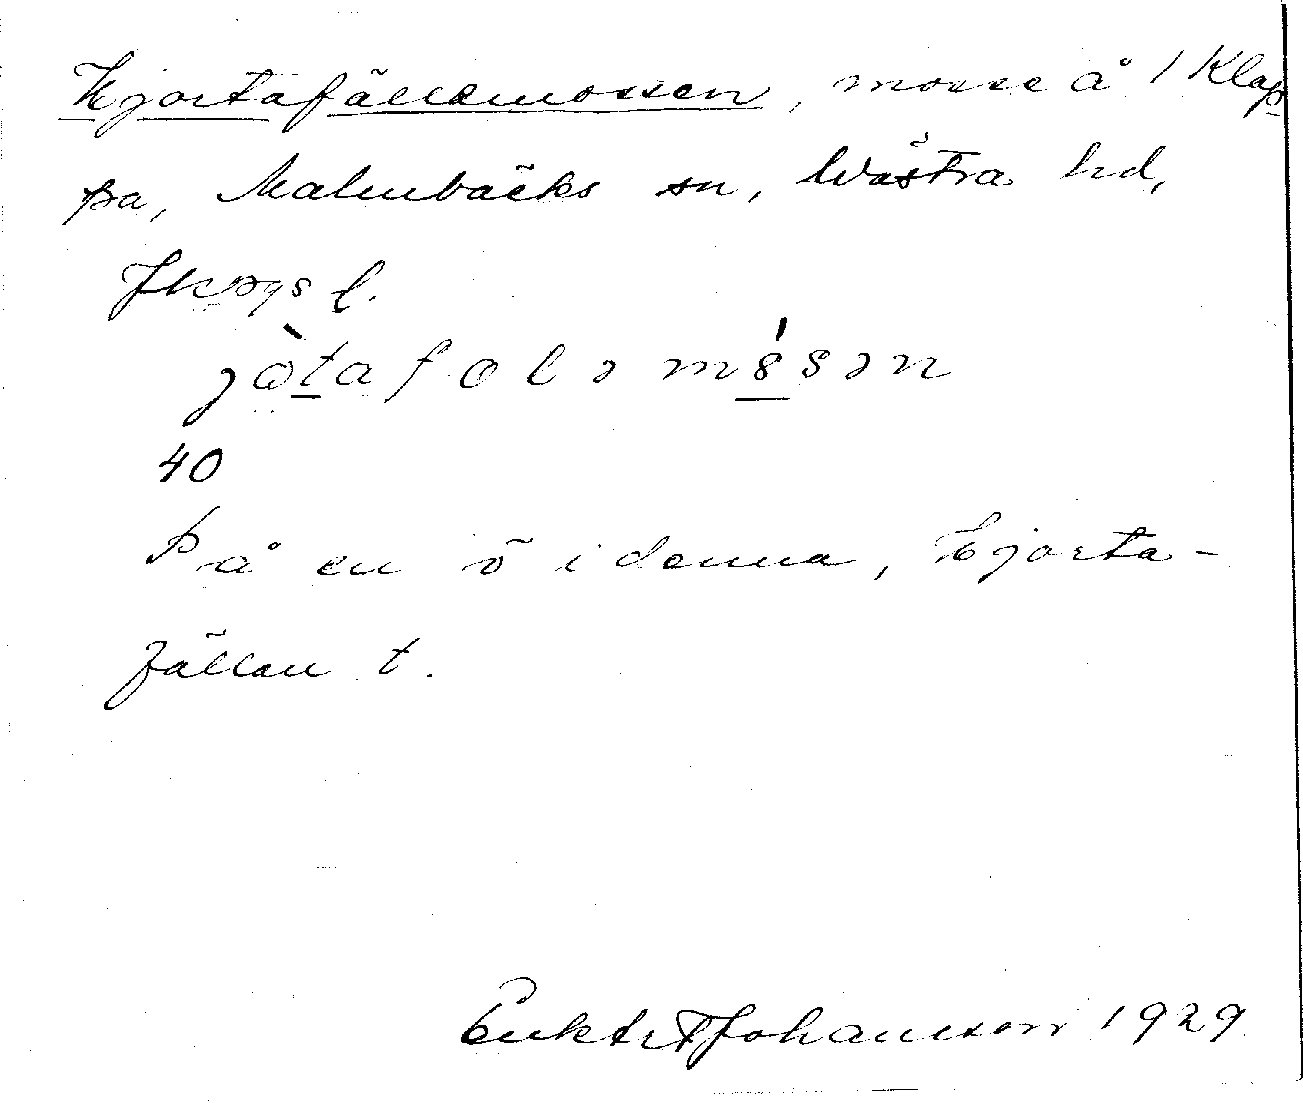 Hjortafällemossen, mosse å 1 Klap-
pa, Malmbäcks sn, Västra hd,
Jkpgs l.
jòtafɷləmósən
40
På en ö i denna, Hjorta-
fällan t.
Johansson 1929